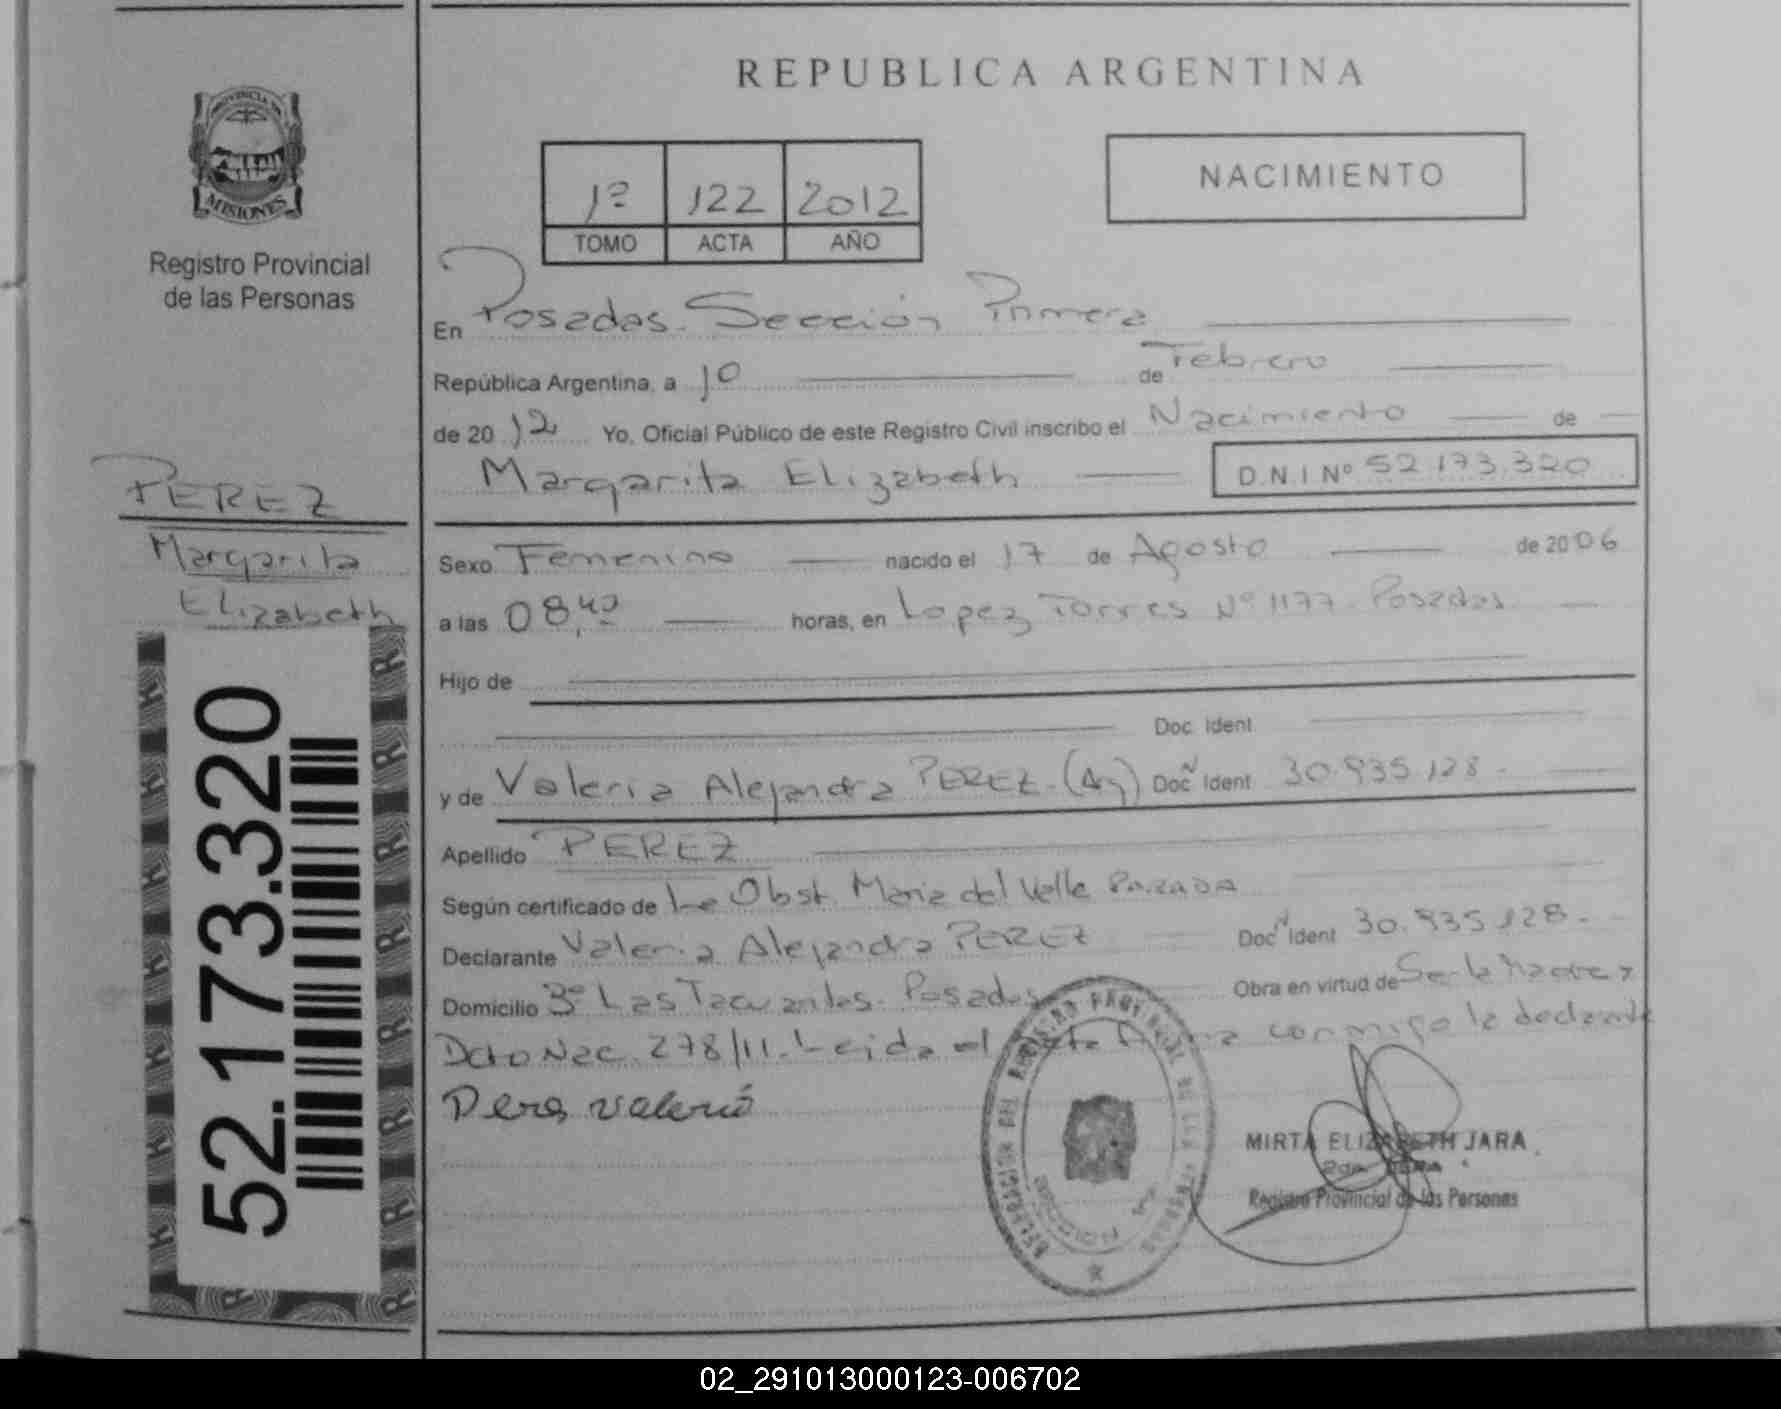 REPUBLICA ARGENTINA
PROVINCIA DE
MISIONES
Registro Provincial
de las Personas
1º 122 2012
TOMO ACTA AÑO
NACIMIENTO
En Posadas. Sección Primera
República Argentina, a 10 de Febrero
de 20 12 Yo, Oficial Público de este Registro Civil inscribo el Nacimiento de
Margarita Elizabeth D.N.I Nº 52.173.320
PEREZ
Margarita
Elizabeth
52.173.320
Sexo Femenino nacido el 17 de Agosto de 2006
a las 08,40 horas, en Lopez Torres Nº 1177. Posadas
Hijo de
Doc. Ident.
y de Valeria Alejandra PEREZ. (Arg) Doc. N Ident. 30.935.128.
Apellido PEREZ
Según certificado de La Obst. Maria del Valle
Declarante Valeria Alejandra PEREZ Doc. N Ident. 30.935.128.
Domicilio Bº Las Tacuaritas. Posadas Obra en virtud de Ser la Madre y
Dcto Nac. 278/11. Leida el acta firma conmigo la declarante
Perez valeria
MIRTA ELIZABETH JARA
Registro Provincial de las Personas
02_291013000123-006702